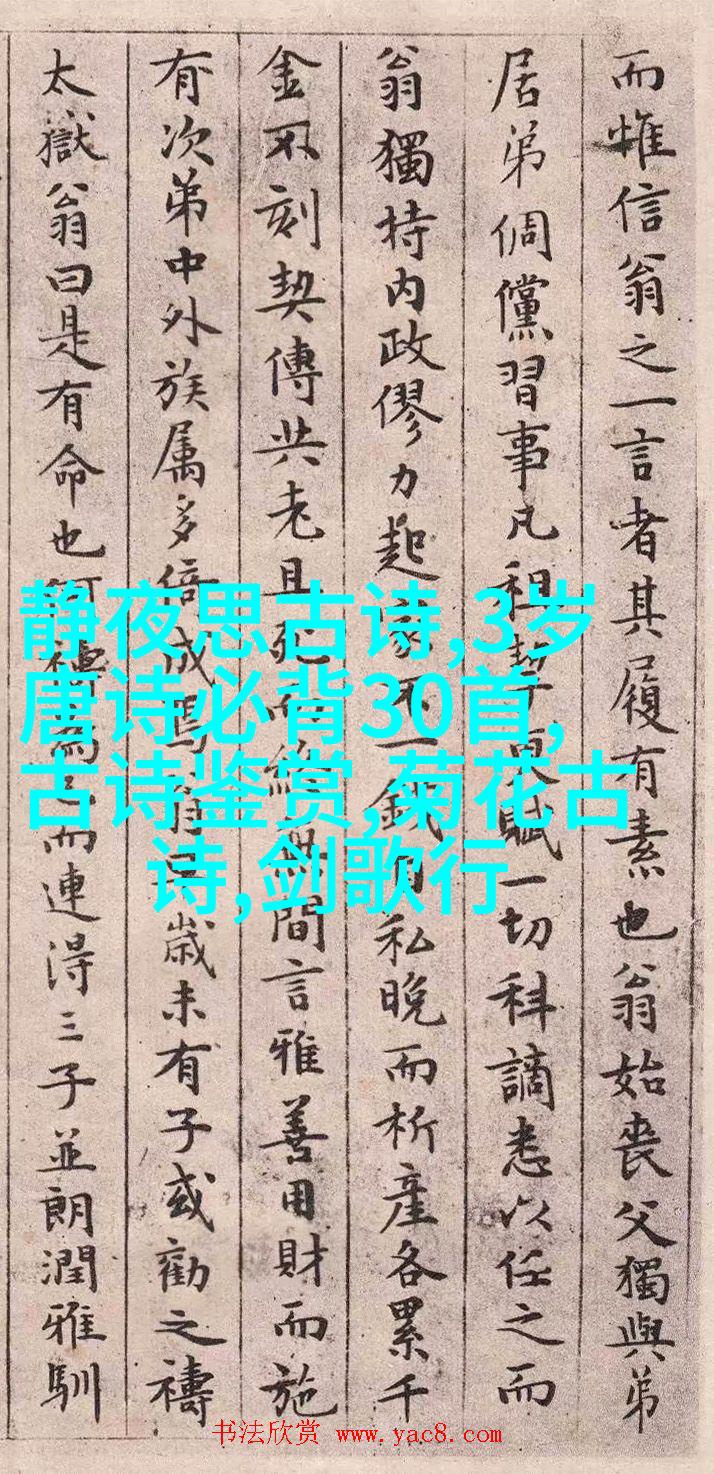 而惟信翁之一言者其履有素也翁始喪父獨與弟
居弟倜儻習事凡租賦一切科謫悉以任之而
翁獨持内政僇力起家不一錢自私晚而析產各累千
金不刻契傳共老且死而終無間言雅善用財而施
有次弟中外族属多倍成焉歲未有子或勸之禱
太嶽翁曰是有命也何禱而連得三子並朗潤雅馴
静夜思古诗,3岁
唐诗必背30首,
古诗鉴赏,菊花古
诗,剑歌行
书法欣赏 www.yac8.com